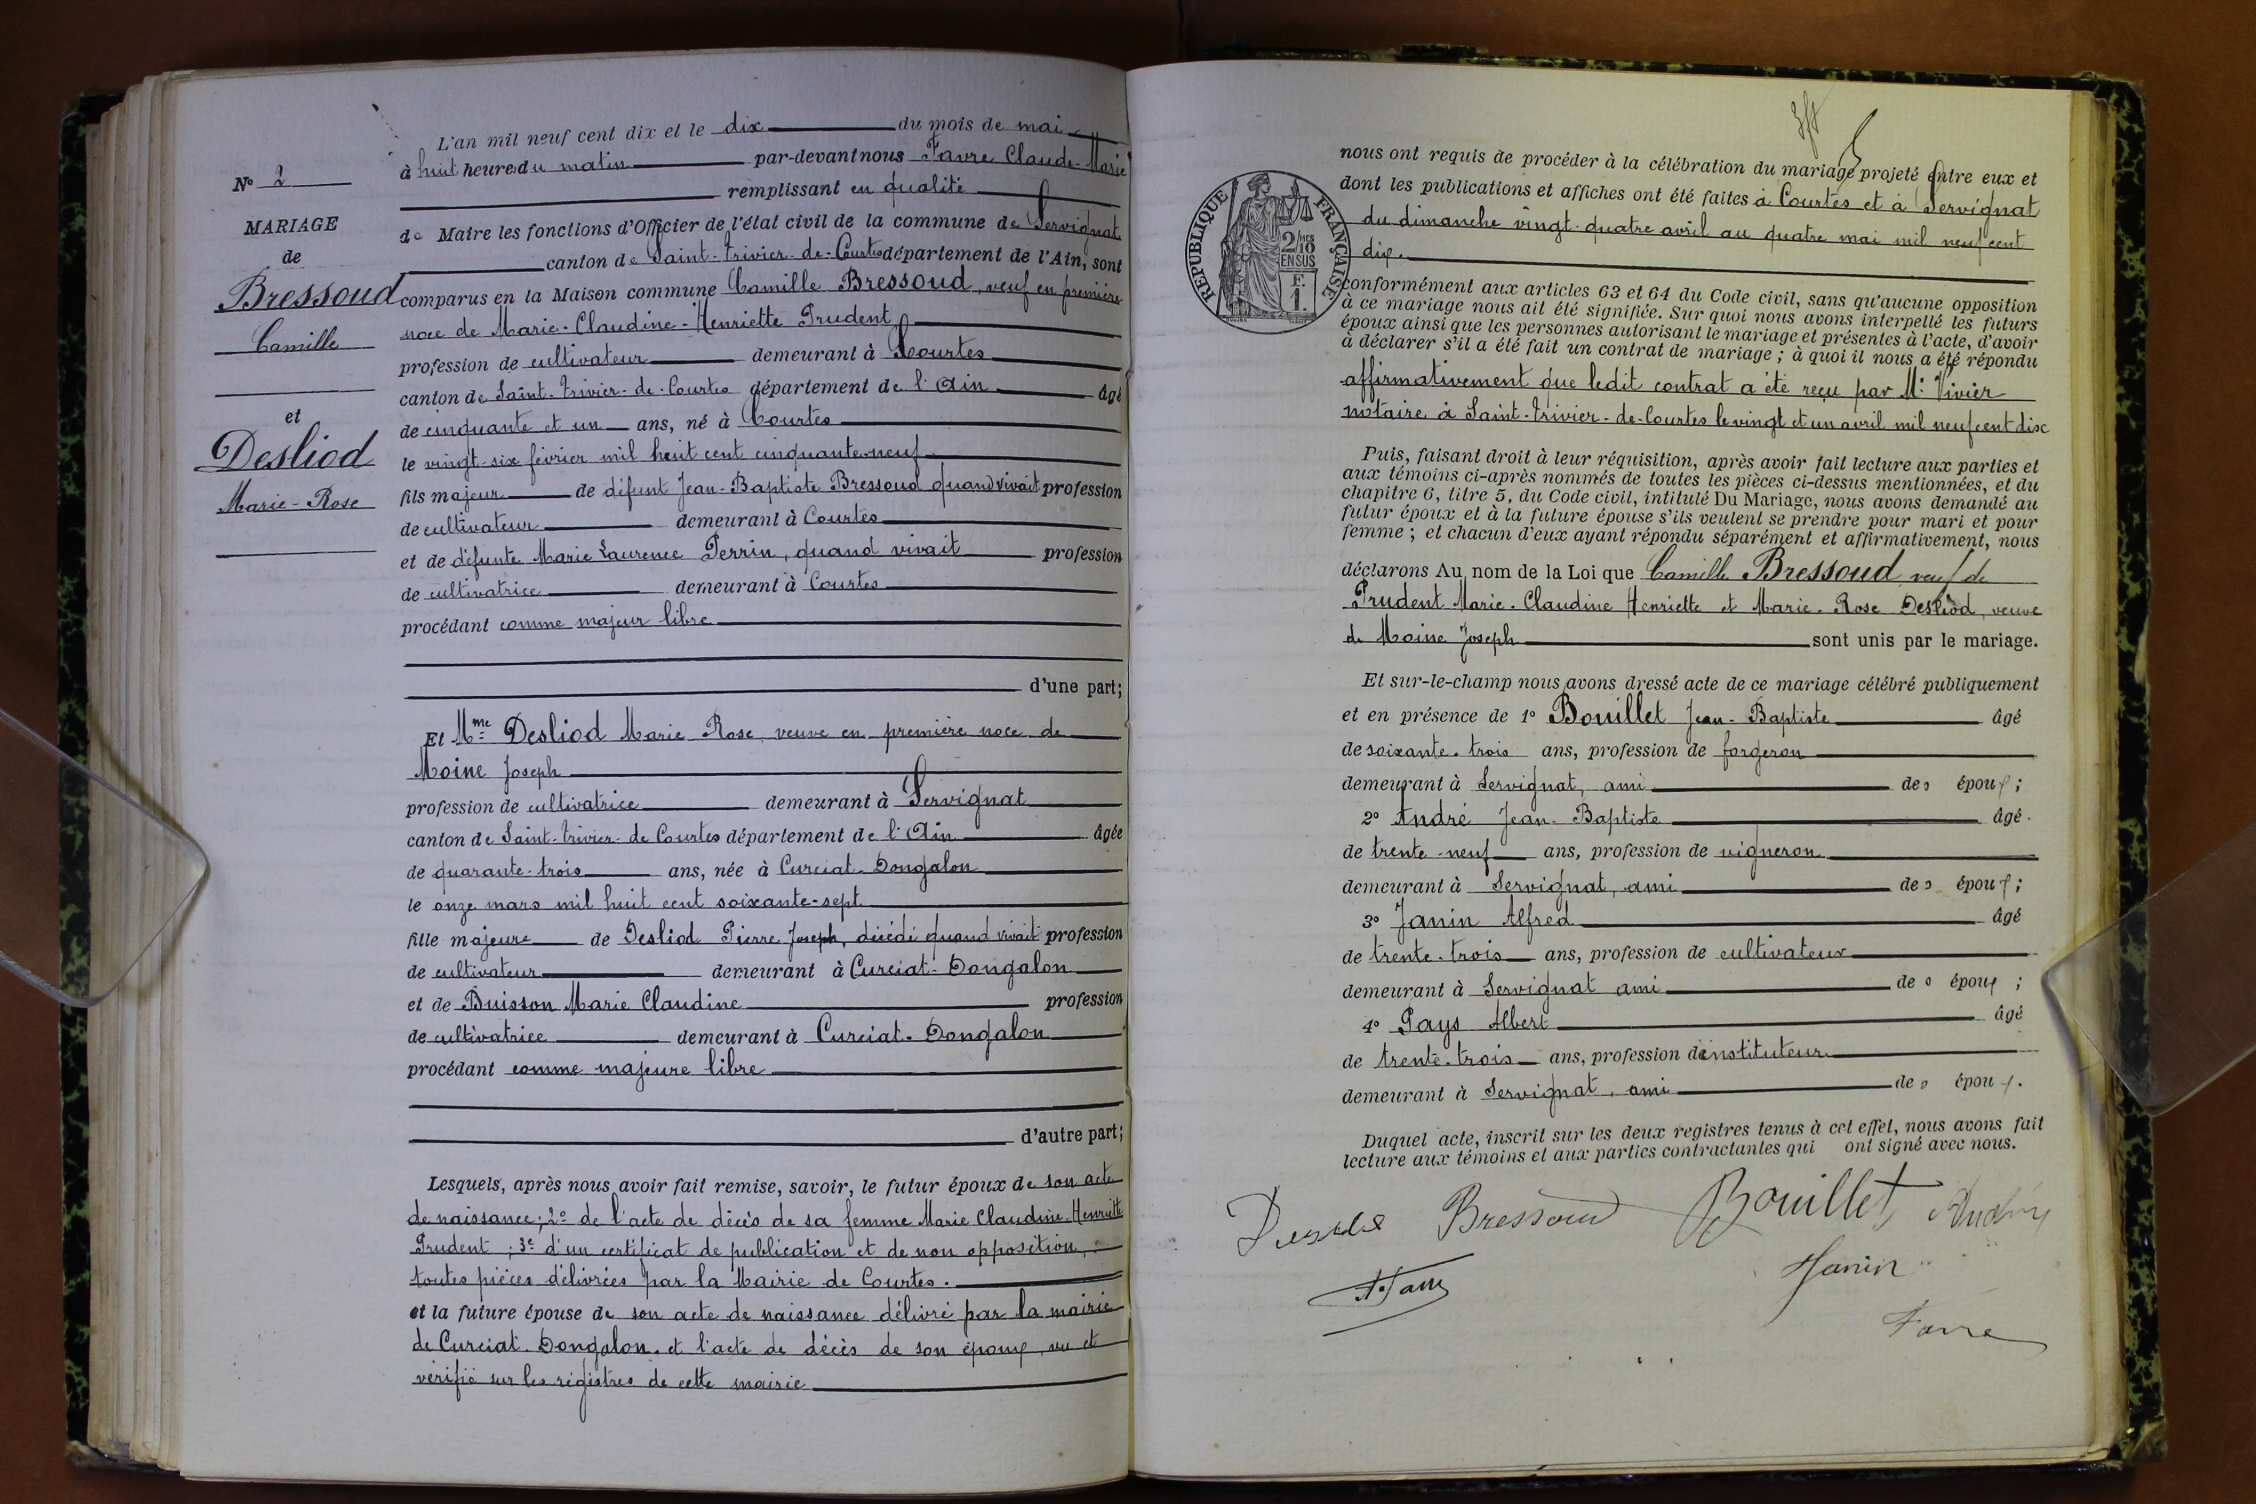 N° 2
MARIAGE
de
Bressoud
Camille
et
Desliod
Marie-Rose
L'an mil neuf cent dix et le dix du mois de mai
à huit heures du matin par-devant nous Favre Claude-Marie
remplissant en qualité
de Maire les fonctions d'Officier de l'état civil de la commune de Servignat
canton de Saint-Trivier-de-Courtes département de l'Ain, sont
comparus en la Maison commune Camille Bressoud, veuf en première
noce de Marie-Claudine-Henriette Prudent
profession de cultivateur demeurant à Courtes
canton de Saint-Trivier-de-Courtes département de l'Ain âgé
de cinquante et un ans, né à Courtes
le vingt-six février mil huit cent cinquante-neuf
fils majeur de défunt Jean-Baptiste Bressoud quand vivait profession
de cultivateur demeurant à Courtes
et de défunte Marie Laurence Perrin, quand vivait profession
de cultivatrice demeurant à Courtes
procédant comme majeur libre
d'une part;
Et Mme Desliod Marie Rose, veuve en première noce de
Moine Joseph
profession de cultivatrice demeurant à Servignat
canton de Saint-Trivier-de Courtes département de l'Ain âgée
de quarante-trois ans, née à Curciat-Dongalon
le onze mars mil huit cent soixante-sept
fille majeure de Desliod Pierre Joseph, décédé quand vivait profession
de cultivateur demeurant à Curciat-Dongalon
et de Buisson Marie Claudine profession
de cultivatrice demeurant à Curciat-Dongalon
procédant comme majeure libre
d'autre part;
Lesquels, après nous avoir fait remise, savoir, le futur époux de son acte
de naissance; 2° de l'acte de décès de sa femme Marie Claudine-Henriette
Prudent; 3° d'un certificat de publication et de non opposition,
toutes pièces délivrées par la Mairie de Courtes.
et la future épouse de son acte de naissance délivré par la mairie
de Curciat-Dongalon et l'acte de décès de son époux, vu et
vérifié sur les registres de cette mairie
RÉPUBLIQUE FRANÇAISE
2/10 MES
EN SUS
F.
1.
nous ont requis de procéder à la célébration du mariage projeté entre eux et
dont les publications et affiches ont été faites à Courtes et à Servignat
du dimanche vingt-quatre avril au quatre mai mil neuf cent
dix.
conformément aux articles 63 et 64 du Code civil, sans qu'aucune opposition
à ce mariage nous ait été signifiée. Sur quoi nous avons interpellé les futurs
époux ainsi que les personnes autorisant le mariage et présentes à l'acte, d'avoir
à déclarer s'il a été fait un contrat de mariage; à quoi il nous a été répondu
affirmativement que ledit contrat a été reçu par Me Vivier
notaire à Saint-Trivier-de-Courtes le vingt et un avril mil neuf cent dix
Puis, faisant droit à leur réquisition, après avoir fait lecture aux parties et
aux témoins ci-après nommés de toutes les pièces ci-dessus mentionnées, et du
chapitre 6, titre 5, du Code civil, intitulé Du Mariage, nous avons demandé au
futur époux et à la future épouse s'ils veulent se prendre pour mari et pour
femme; et chacun d'eux ayant répondu séparément et affirmativement, nous
déclarons Au nom de la Loi que Camille Bressoud, veuf de
Prudent Marie-Claudine Henriette et Marie-Rose Desliod, veuve
de Moine Joseph sont unis par le mariage.
Et sur-le-champ nous avons dressé acte de ce mariage célébré publiquement
et en présence de 1° Bouillet Jean-Baptiste âgé
de soixante-trois ans, profession de forgeron
demeurant à Servignat, ami des époux;
2° André Jean-Baptiste âgé
de trente-neuf ans, profession de vigneron
demeurant à Servignat, ami des époux;
3° Janin Alfred âgé
de trente-trois ans, profession de cultivateur
demeurant à Servignat ami des époux;
4° Pays Albert âgé
de trente-trois ans, profession d'instituteur
demeurant à Servignat, ami des époux.
Duquel acte, inscrit sur les deux registres tenus à cet effet, nous avons fait
lecture aux témoins et aux parties contractantes qui ont signé avec nous.
Bressoud Bouillet André
Janin
Favre